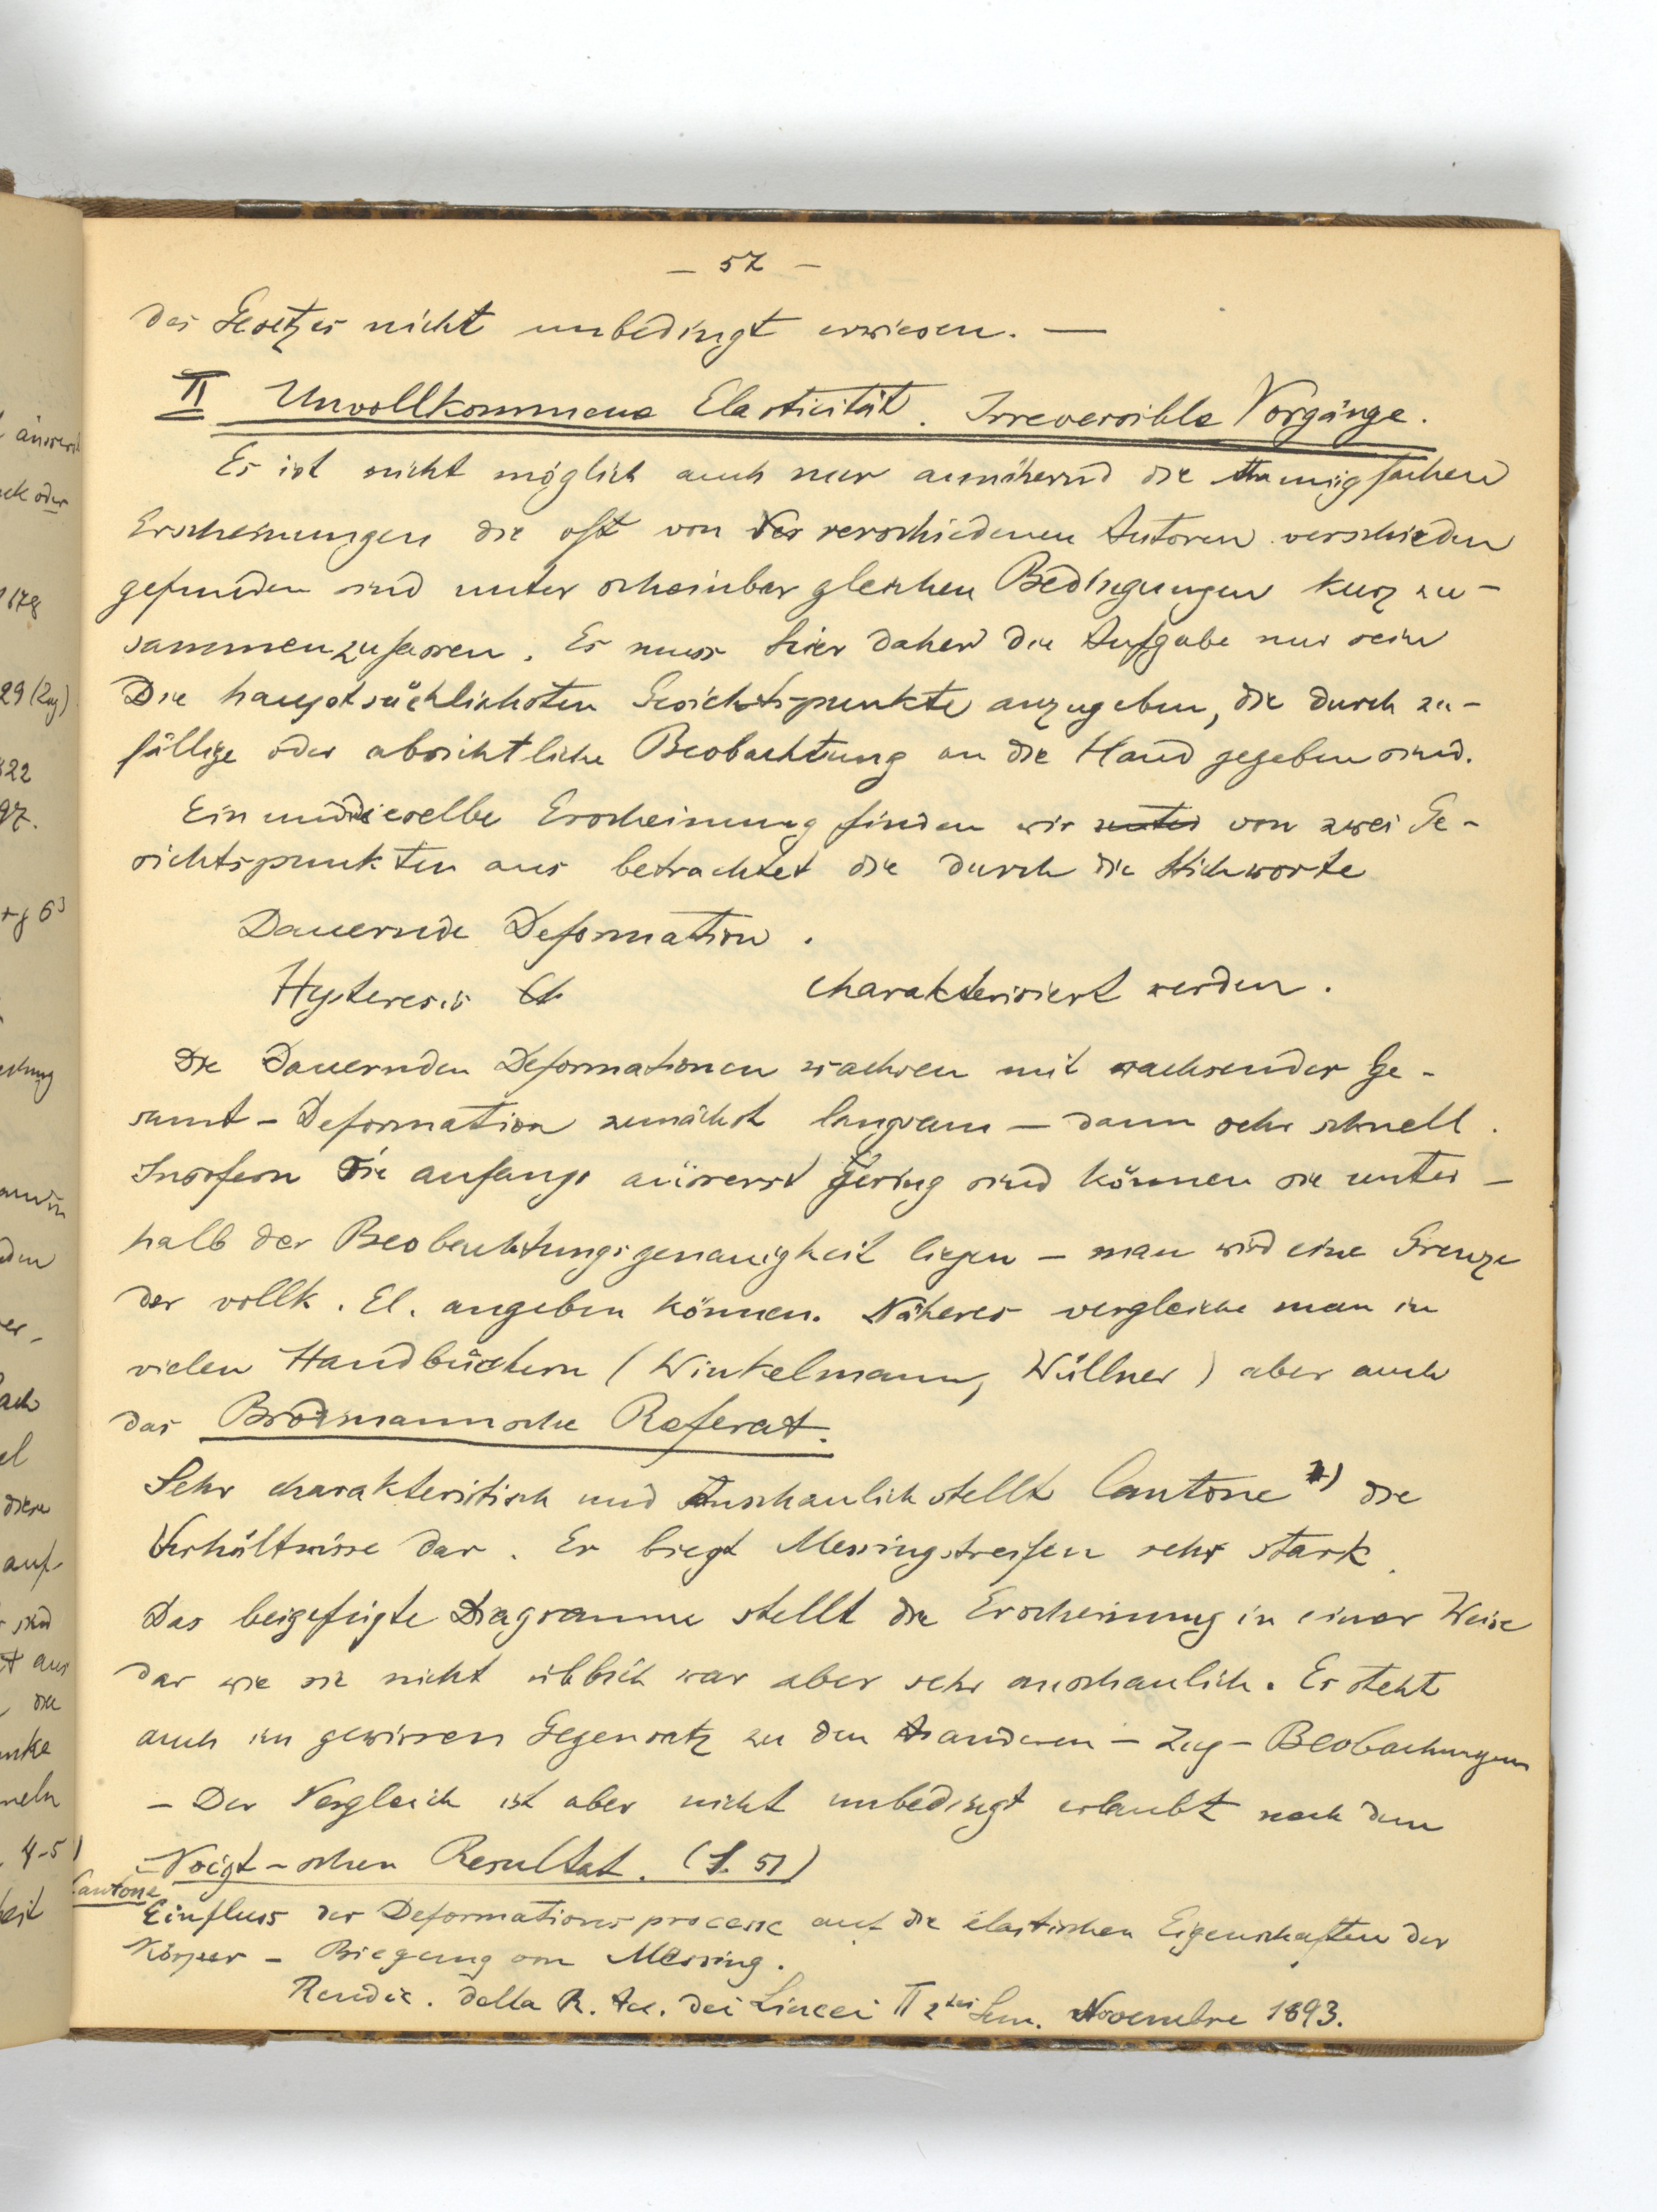 — 57 —
des Gesetzes nicht unbedingt erwiesen. —
II Unvollkommene Elasticität. Irreversible Vorgänge.
Es ist nicht möglich auch nur annähernd die mannigfachen
Erscheinungen die oft von verschiedenen Autoren verschieden
gefunden sind unter scheinbar gleichen Bedingungen kurz zu-
sammenzufassen. Es muss hier daher die Aufgabe nur sein
Die hauptsächlichsten Gesichtspunkte anzugeben, die durch zu-
fällige oder absichtliche Beobachtung an die Hand gegeben sind.
Ein und dieselbe Erscheinung finden wir unter von zwei Ge-
sichtspunkten aus betrachtet die durch die Stichworte
Dauernde Deformation.
Hysteresis charakterisiert werden.
Die Dauernden Deformationen wachsen mit wachsender Ge-
samt-Deformation zunächst langsam — dann sehr schnell.
Insofern sie anfangs äusserst gering sind können sie unter-
halb der Beobachtungsgenauigkeit liegen — man wird eine Grenze
der vollk. El. angeben können. Näheres vergleiche man in
vielen Handbüchern (Winkelmann, Wüllner) aber auch
das Brodmannsche Referat.
Sehr charakteristisch und anschaulich stellt Cantone 1) die
Verhältnisse dar. Er biegt Messingstreifen sehr stark.
Das beigefügte Diagramme stellt die Erscheinung in einer Weise
dar wie sie nicht üblich war aber sehr anschaulich. Es steht
auch im gewissen Gegensatz zu den anderen — Zug-Beobachungen
— Der Vergleich ist aber nicht unbedingt erlaubt nach dem
Voigt-schen Resultat. (S. 51)
Cantone
Einfluss der Deformationsprocesse auf die elastischen Eigenschaften der
Körper — Biegung von Messing.
Rendic. della R. Ac. dei Lincei II 2 Sem. Novembre 1893.